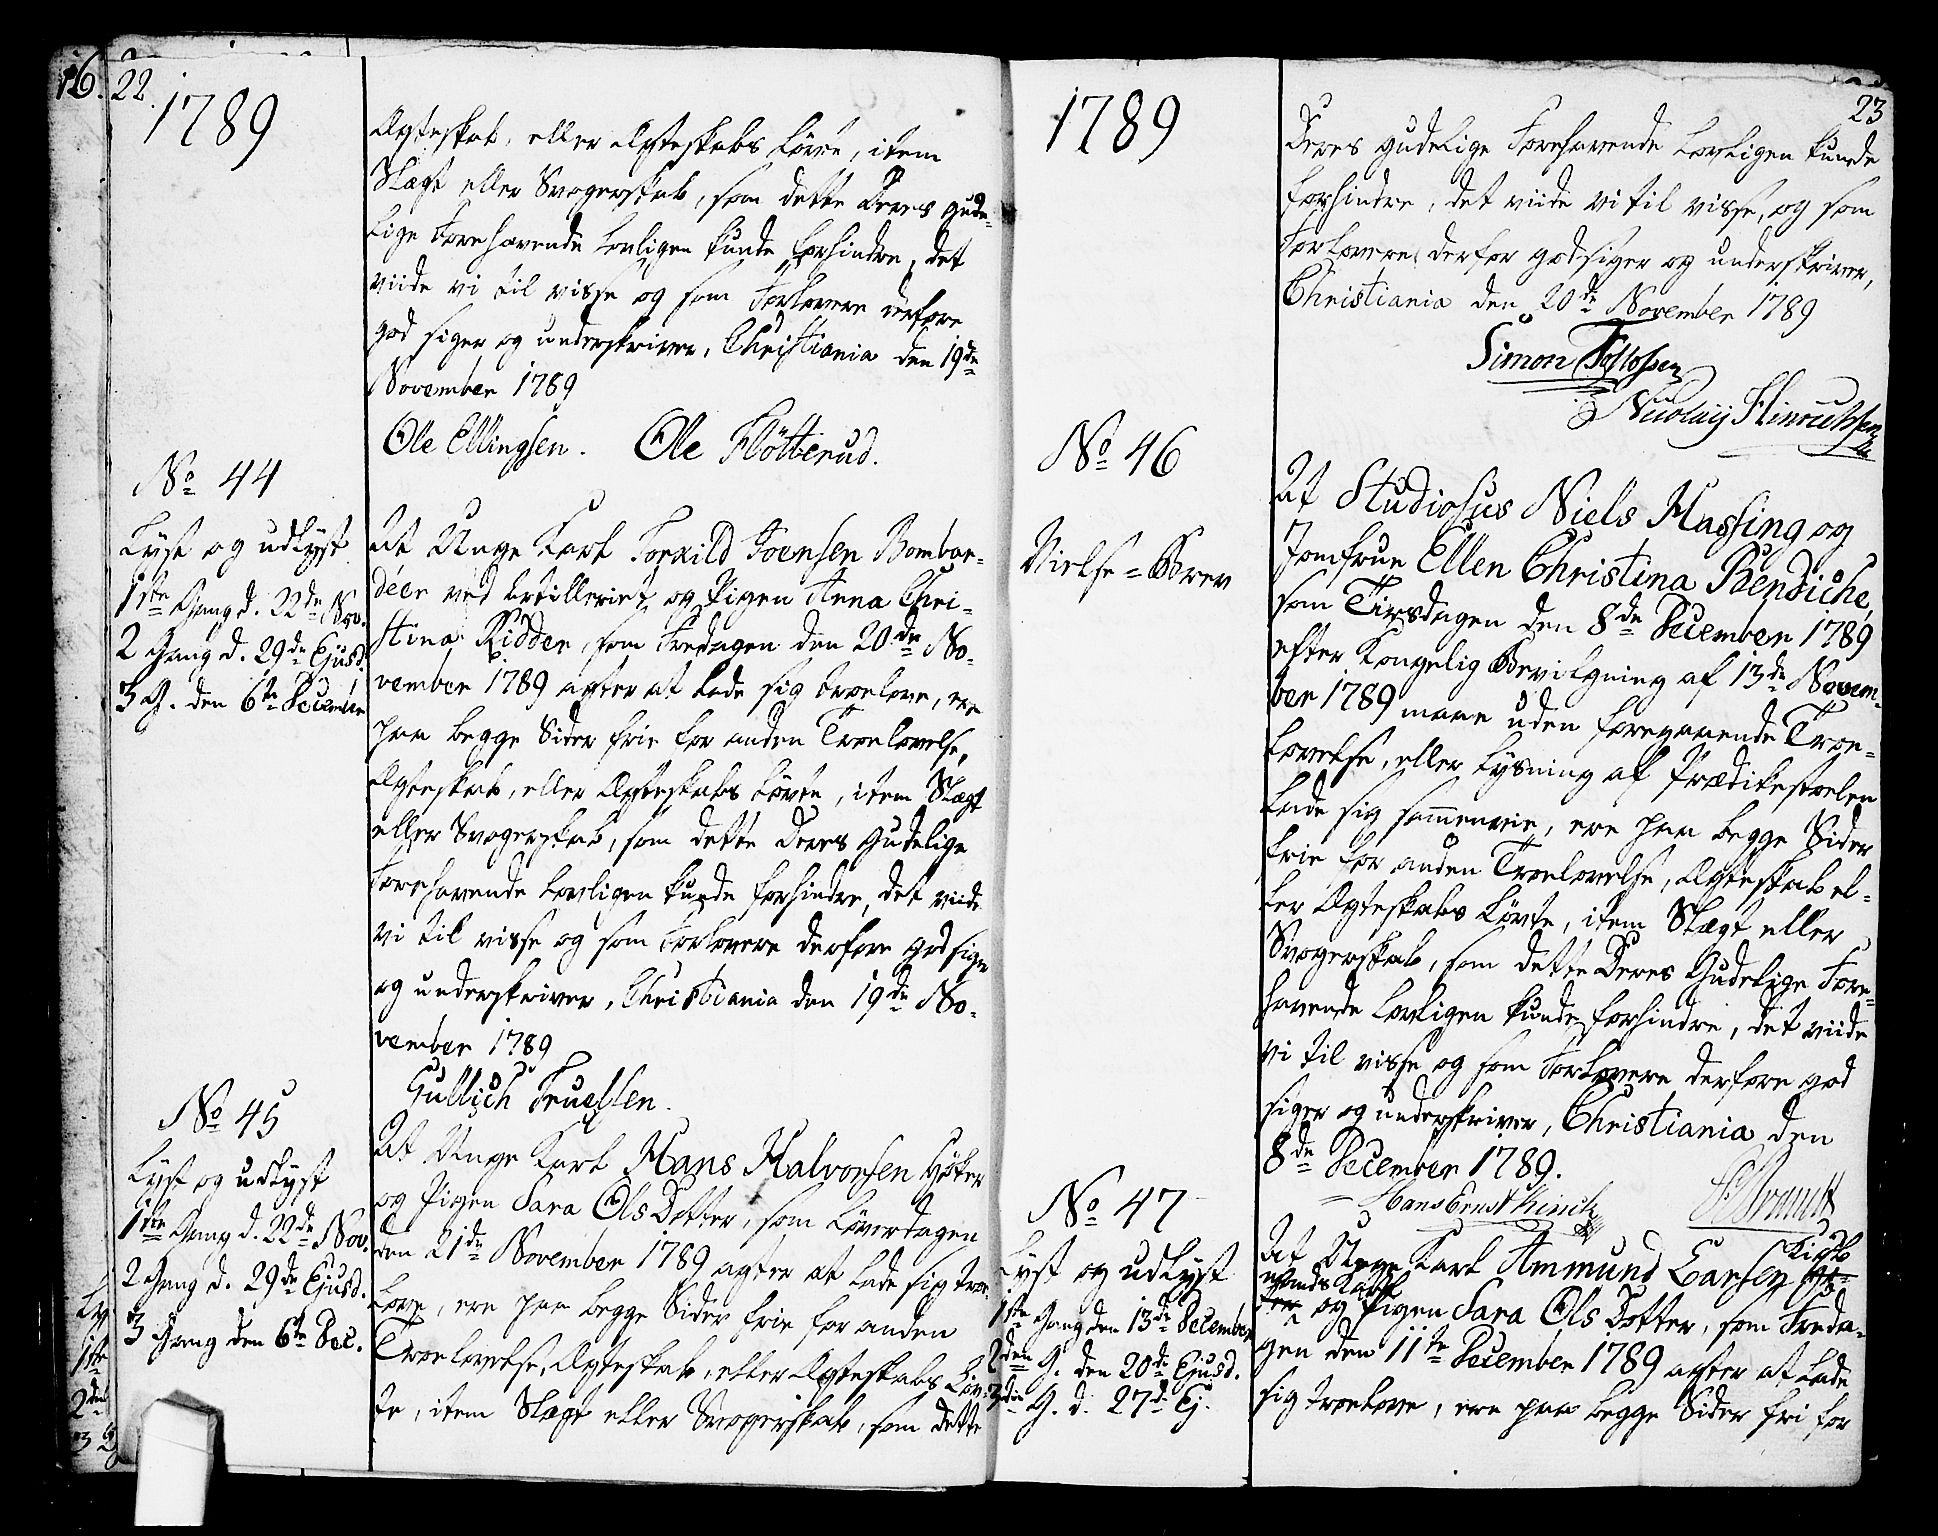 16. 22.
1789
Ægteskab, eller Ægteskabs Løvte, item
Slægt eller Svogerskab, som dette Deres gude-
lige Forehavende lovligen kunde forhindre, det
viide vi til visse og som Forlovere derfore
god siger og underskriver, Christiania den 19de
November 1789
Ole Ellingsen. Ole Flötterud.
No 44
Lyst og udlyst
1ste Gang d. 22de Nov.
2 Gang d. 29de Ejusd.
3 G. den 6te December
At Unge Karl Torkild Joensen Bombar-
déer ved Artilleriet og Pigen Anna Chri-
stina Ridder, som Fredagen den 20de No-
vember 1789 agter at lade sig troelove, ere
paa begge Sider frie for anden Troelovelse,
Ægteskab, eller Ægteskabs Løvte, item Slægt
eller Svogerskab, som dette Deres Gudelige
Forehavende lovligen kunde forhindre, det viide
vi til visse og som Forlovere derfore god siger
og underskriver, Christiania den 19de No-
vember 1789
Gullich Truelsen.
No 45
Lyst og udlyst
1ste Gang d. 22de Nov.
2 Gang d. 29de Ejusd.
3 Gang den 6te Dec.
At Unge Karl Hans Halvorsen Høker
og Pigen Sara Ols Dotter, som Løverdagen
den 21de November 1789 agter at lade sig troe-
love, ere paa begge Sider frie for anden
Troelovelse, Ægteskab, eller Ægteskabs Løv-
te, item Slægt eller Svogerskab, som dette
Ly
1ste
2den
3
1789
23
Deres gudelige Forehavende lovligen kunde
forhindre, det viide vi til visse, og som
Forlovere derfor godsiger og underskriver,
Christiania den 20de November 1789
Simon
Nicolaij
No 46
Vielse-Brev
At Studiosus Niels Massing og
Jomfrue Ellen Christina Bendiche,
som Tirsdagen den 8de December 1789
efter Kongelig Bevilgning af 13de Novem-
ber 1789 maae uden foregaaende Troe-
lovelse, eller Lysning af Prædikestoelen
lade sig sammenvie, ere paa begge Sider
frie for anden Troelovelse, Ægteskab el-
ler Ægteskabs Løvte, item Slægt eller
Svogerskab, som dette Deres Gudelige Fore-
havende lovligen kunde forhindre, det viide
vi til visse og som Forlovere derfore god
siger og underskriver, Christiania den
8de December 1789.
Hans Ernst
No 47
Lyst og udlyst
1ste Gang den 13de December
2den G. den 20de Ejusd.
3die G. d. 27de Ej.
At Unge Karl Ammund Larsen
og Pigen Sara Ols Dotter, som Freda-
gen den 11te December 1789 agter at lade
sig troelove, ere paa begge Sider fri for